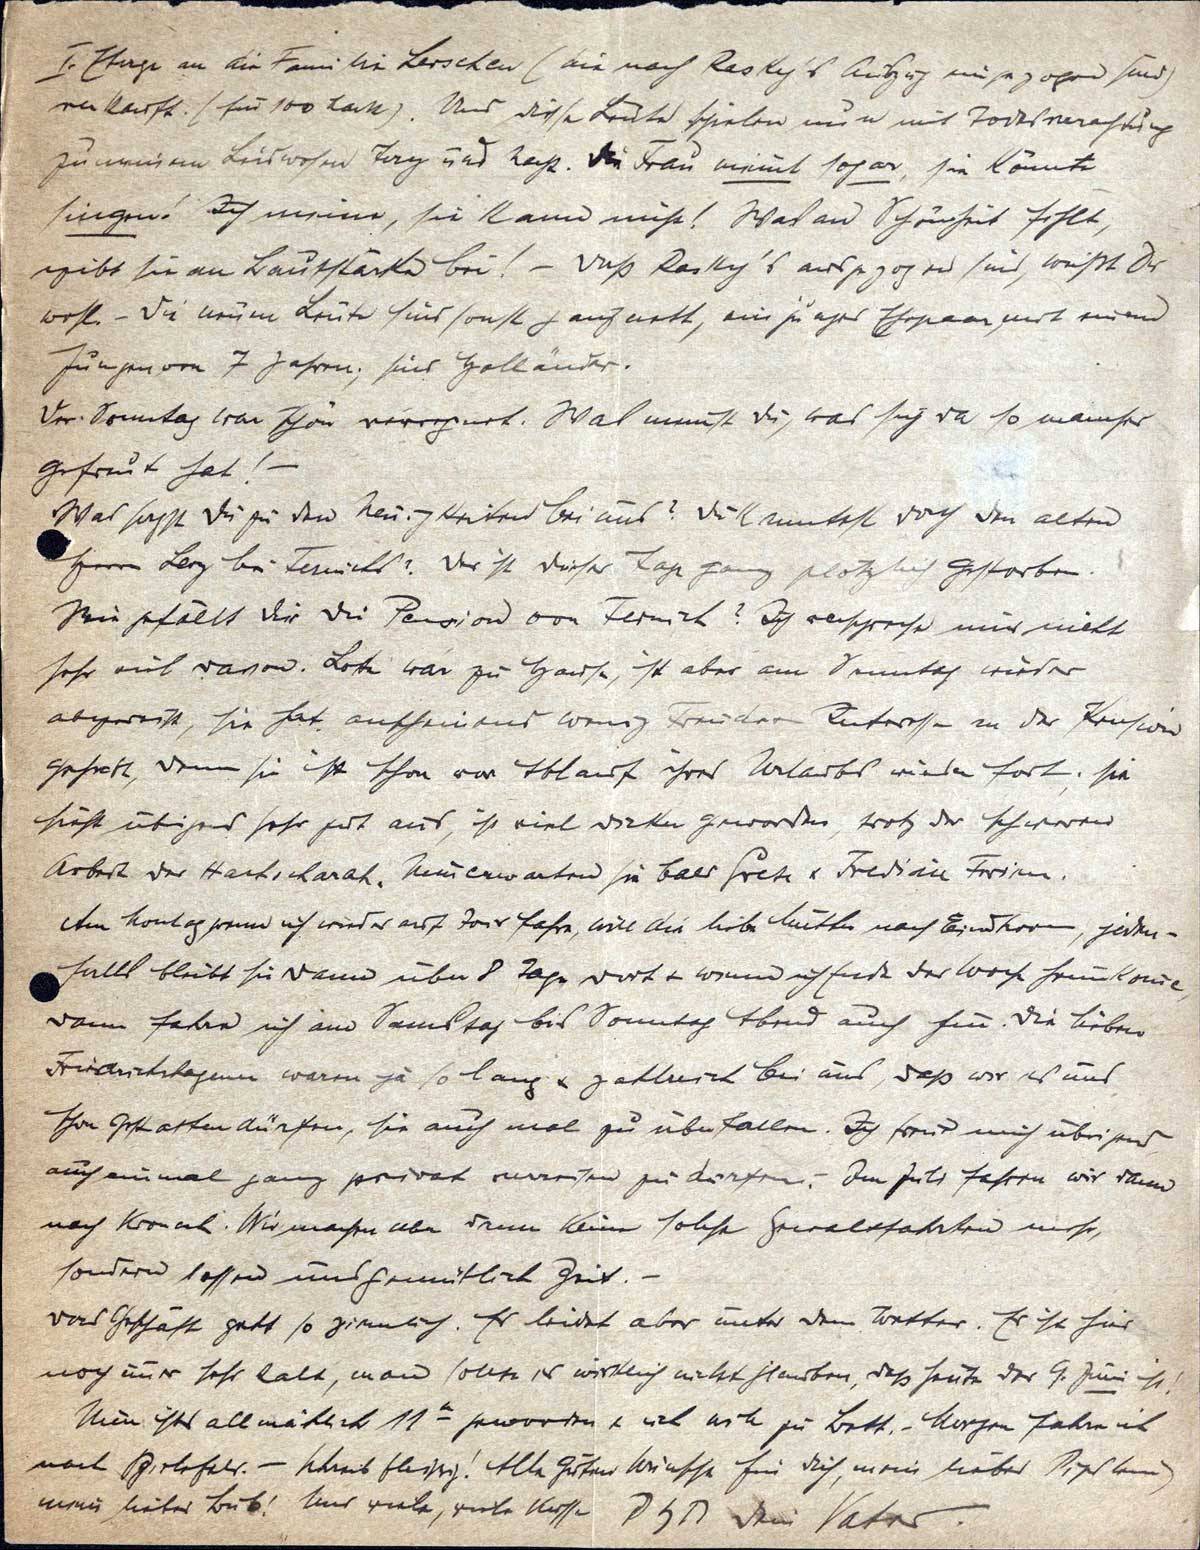 I. Etage an die Familie Lerschen (die nach Rasky's Auszug eingezogen sind)
verkauft. (für 100 Mark). Und diese Leute spielen nun mit Todesverachtung
zu meinem Leidwesen Tag und Nacht. Die Frau meint sogar, sie könnte
singen! Ich meine, sie kann nicht! Was an Schönheit fehlt,
gibt sie an Lautstärke bei! – Daß Rasky's ausgezogen sind, weißt Du
wohl. – Die neuen Leute sind sonst ganz nett, ein junges Ehepaar, mit einem
Jungen von 7 Jahren; sind Holländer.
Der Sonntag war schön verregnet. Was meinst Du, was sich da so mancher
gefreut hat! –
Was sagst Du zu den Neuigkeiten bei uns? Du kanntest doch den alten
Herrn Levy bei Ternichs? Der ist dieser Tage ganz plötzlich gestorben.
Wie gefällt Dir die Pension von Ternich? Ich verspreche mir nicht
sehr viel davon. Lotte war zu Hause, ist aber am Sonntag wieder
abgereist, sie hat anscheinend wenig Interesse an der Pension
gehabt, denn sie ist schon vor Ablauf ihres Urlaubs wieder fort; sie
sieht übrigens sehr gut aus, ist viel dicker geworden, trotz der schweren
Arbeit der Hachscharah. Nun erwarten sie bald Grete &
Am Montag wenn ich wieder auf Tour fahre, will die liebe Mutter nach Eindhoven, jeden-
falls bleibt sie dann über 8 Tage dort & wenn ich Ende der Woche heimkomme,
dann fahre ich am Samstag bis Sonntag Abend auch hin. Die lieben
waren ja so lang & zahlreich bei uns, daß wir es uns
schon gestatten dürfen, sie auch mal zu überfallen. Ich freue mich übrigens
auch einmal ganz privat verreisen zu dürfen. – Im Juli fahren wir dann
nach Kronach. Wir machen aber dann keine solche Gewaltfahrten mehr,
sondern lassen uns gemütlich Zeit. –
Das Geschäft geht so ziemlich. Es leidet aber unter dem Wetter. Es ist hier
noch immer sehr kalt, man sollte es wirklich nicht glauben, daß heute der 9. Juni ist!
Nun ist es allmählich 11 geworden & ich will zu Bett. – Morgen fahre ich
nach Bielefeld. – Schreib fleißig! Alle guten Wünsche für Dich, mein lieber
mein lieber Bub! Und viele, viele Küsse Dein Vater.